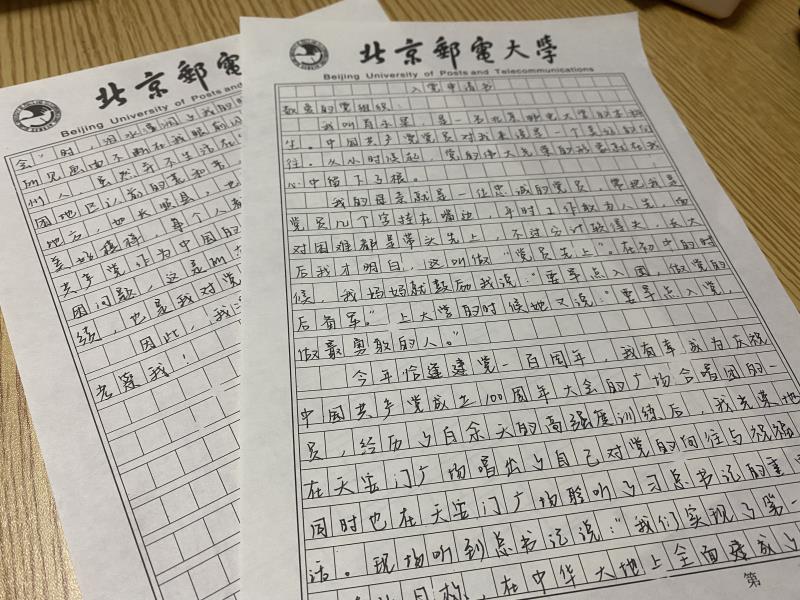 北京郵電
Beijing University of Posts and
会"时，
州人，虽然
困地区以前的
地方，如长顺县，也
美好模样，每个人
共产党，作为中国的
困问题，这是
绩，也是我对党
因此，我
考察我！
北京郵電大學
Beijing University of Posts and Telecommunications
入党申请书
敬爱的党组织：
我叫 ，是一名北京邮电大学的
生。中国共产党党员对我来说是一个 的向
往。从小时候起，党的伟大光荣的形象就在我
心中留下了根。
我的母亲就是一位忠诚的党员，常把我是
党员几个字挂在嘴边，平时工作敢为人先，面
对困难都是带头先上，不过分计较得失，长大
后我才明白，这叫做"党员先上"。在初中的时
候，我妈妈就鼓励我说："要早点入团，做党的
后备军。"上大学的时候她又说："要早点入党，
做最勇敢的人。"
今年恰逢建党一百周年，我有幸成为庆祝
中国共产党成立100周年大会的广场合唱团的一
员，经历了百余天的高强度训练后，我光荣地
在天安门广场唱出了自己对党的向往与祝福
同时也在天安门广场聆听了习总书记的重
话。现场听到总书记说："我们实现了第一
目标，在中华大地上全面建成了
第